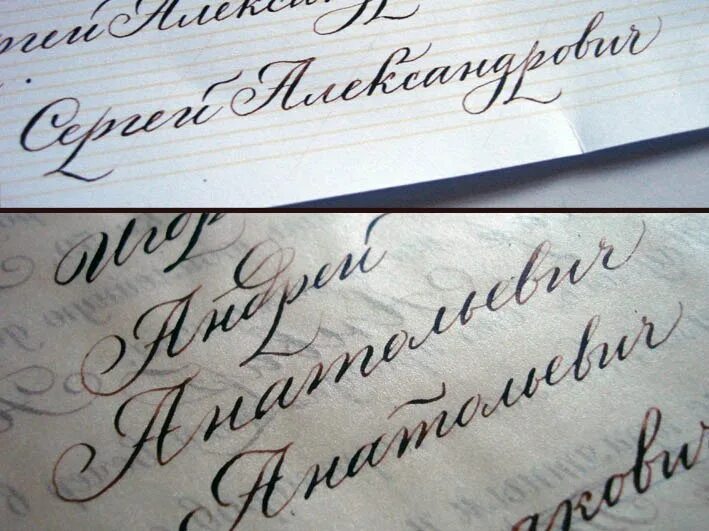 ргей Александ
Сергей Александрович
Игор
Андрей
Анатольевич
Анатольевич
кович